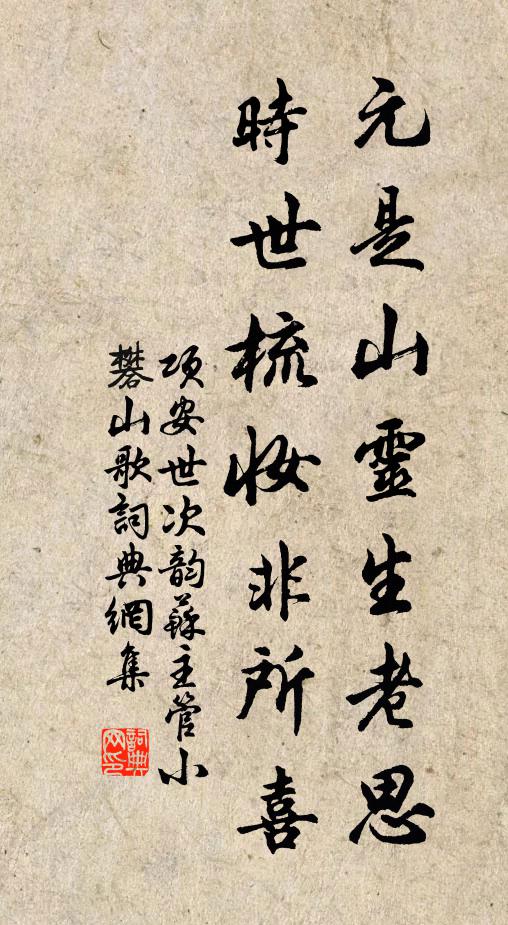 元是山靈生老思
時世梳妝非所喜
項安世次韵蘇主管小
礬山歌詞典網集
詞典
网印